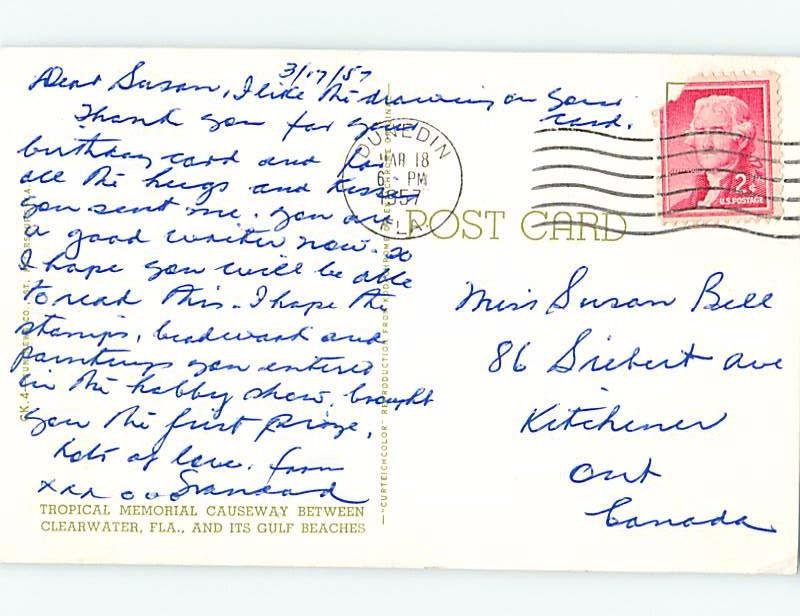 3/17/57
Dear Susan, I like the drawing on your
card.
Thank you for your
birthday card and for
all the hugs and kisses
you sent me. You are
a good writer now. so
I hope you will be able
to read this. I hope the
stamps, beadwork and
paintings you entered
in the hobby show, brought
you the first prize.
Lots of love. from
xxx ooo Grandad
TROPICAL MEMORIAL CAUSEWAY BETWEEN
CLEARWATER, FLA., AND ITS GULF BEACHES
"CURTEICHCOLOR" REPRODUCTION FROM KODACHROME
DUNEDIN
MAR 18
6 - PM
1957
FLA.
POST CARD
2¢
U.S. POSTAGE
Miss Susan Bell
86 Siebert Ave
Kitchener
Ont
Canada